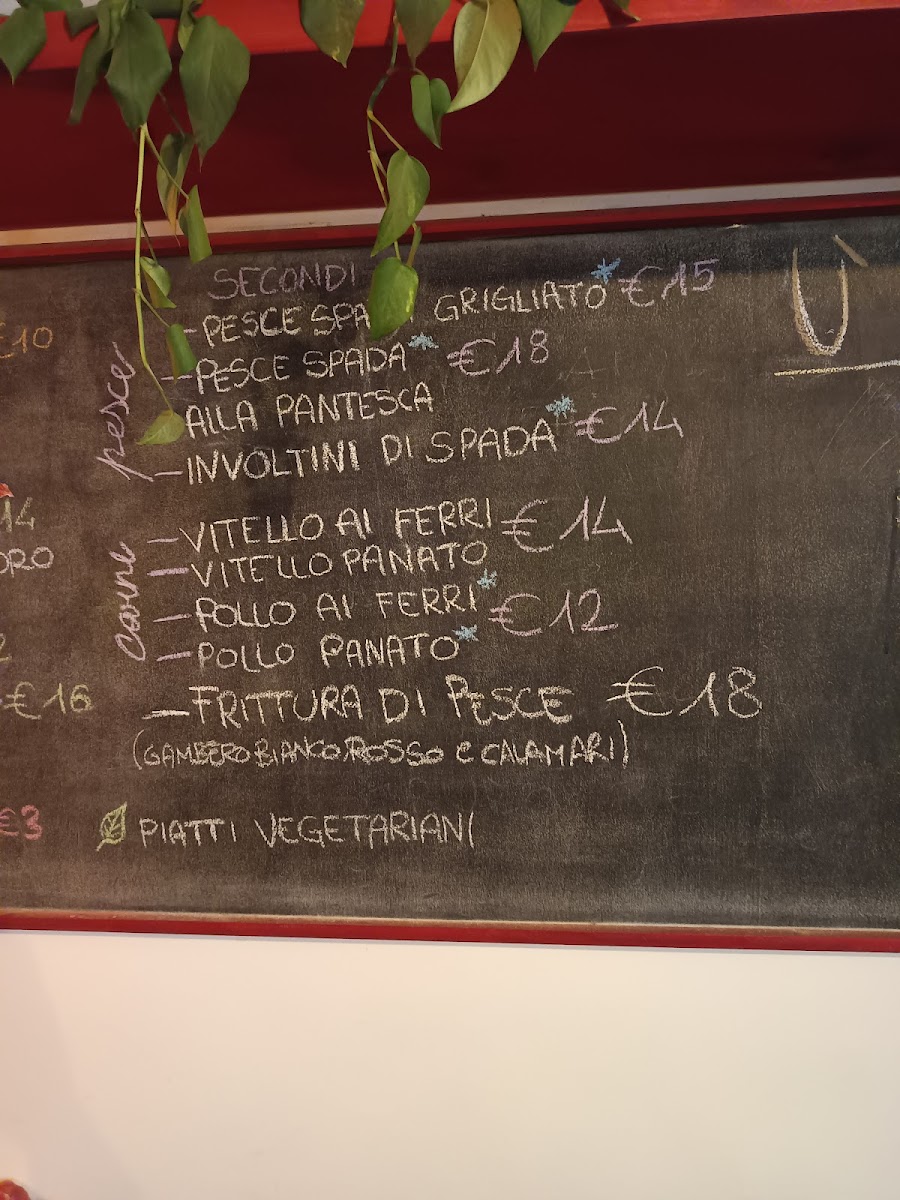 SECONDI
-PESCE SPA GRIGLIATO* €15
-PESCE SPADA* €18
ALLA PANTESCA
-INVOLTINI DI SPADA* €14
pesce
-VITELLO AI FERRI €14
-VITELLO PANATO
-POLLO AI FERRI* €12
-POLLO PANATO*
carne
-FRITTURA DI PESCE €18
(GAMBERO BIANCO, ROSSO e CALAMARI)
PIATTI VEGETARIANI
€10
14
ORO
2
-€16
€3
Ù